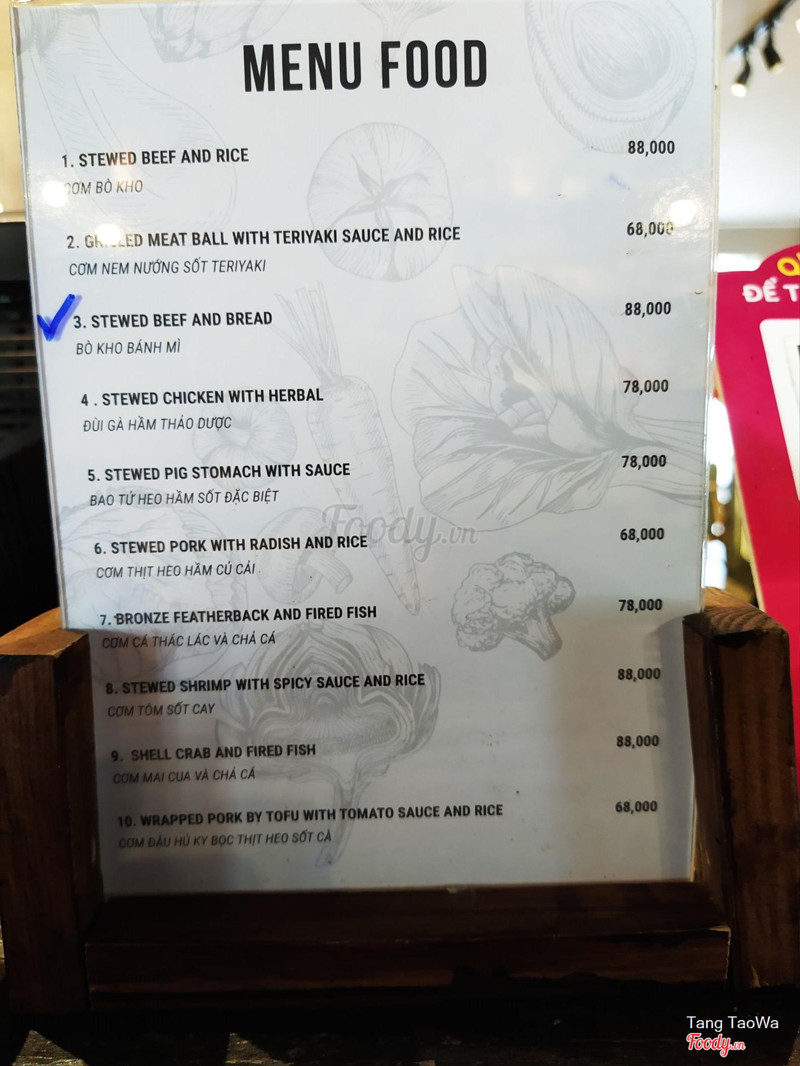 MENU FOOD
1. STEWED BEEF AND RICE 88,000
CƠM BÒ KHO
2. GRILLED MEAT BALL WITH TERIYAKI SAUCE AND RICE 68,000
CƠM NEM NƯỚNG SỐT TERIYAKI
3. STEWED BEEF AND BREAD 88,000
BÒ KHO BÁNH MÌ
4 . STEWED CHICKEN WITH HERBAL 78,000
ĐÙI GÀ HẦM THẢO DƯỢC
5. STEWED PIG STOMACH WITH SAUCE 78,000
BAO TỬ HEO HẦM SỐT ĐẶC BIỆT
6. STEWED PORK WITH RADISH AND RICE 68,000
CƠM THỊT HEO HẦM CỦ CẢI
7. BRONZE FEATHERBACK AND FIRED FISH 78,000
CƠM CÁ THÁC LÁC VÀ CHẢ CÁ
8. STEWED SHRIMP WITH SPICY SAUCE AND RICE 88,000
CƠM TÔM SỐT CAY
9. SHELL CRAB AND FIRED FISH 88,000
CƠM MAI CUA VÀ CHẢ CÁ
10. WRAPPED PORK BY TOFU WITH TOMATO SAUCE AND RICE 68,000
CƠM ĐẬU HỦ KY BỌC THỊT HEO SỐT CÀ
Foody.vn
ĐỂ
Tang TaoWa
Foody.vn